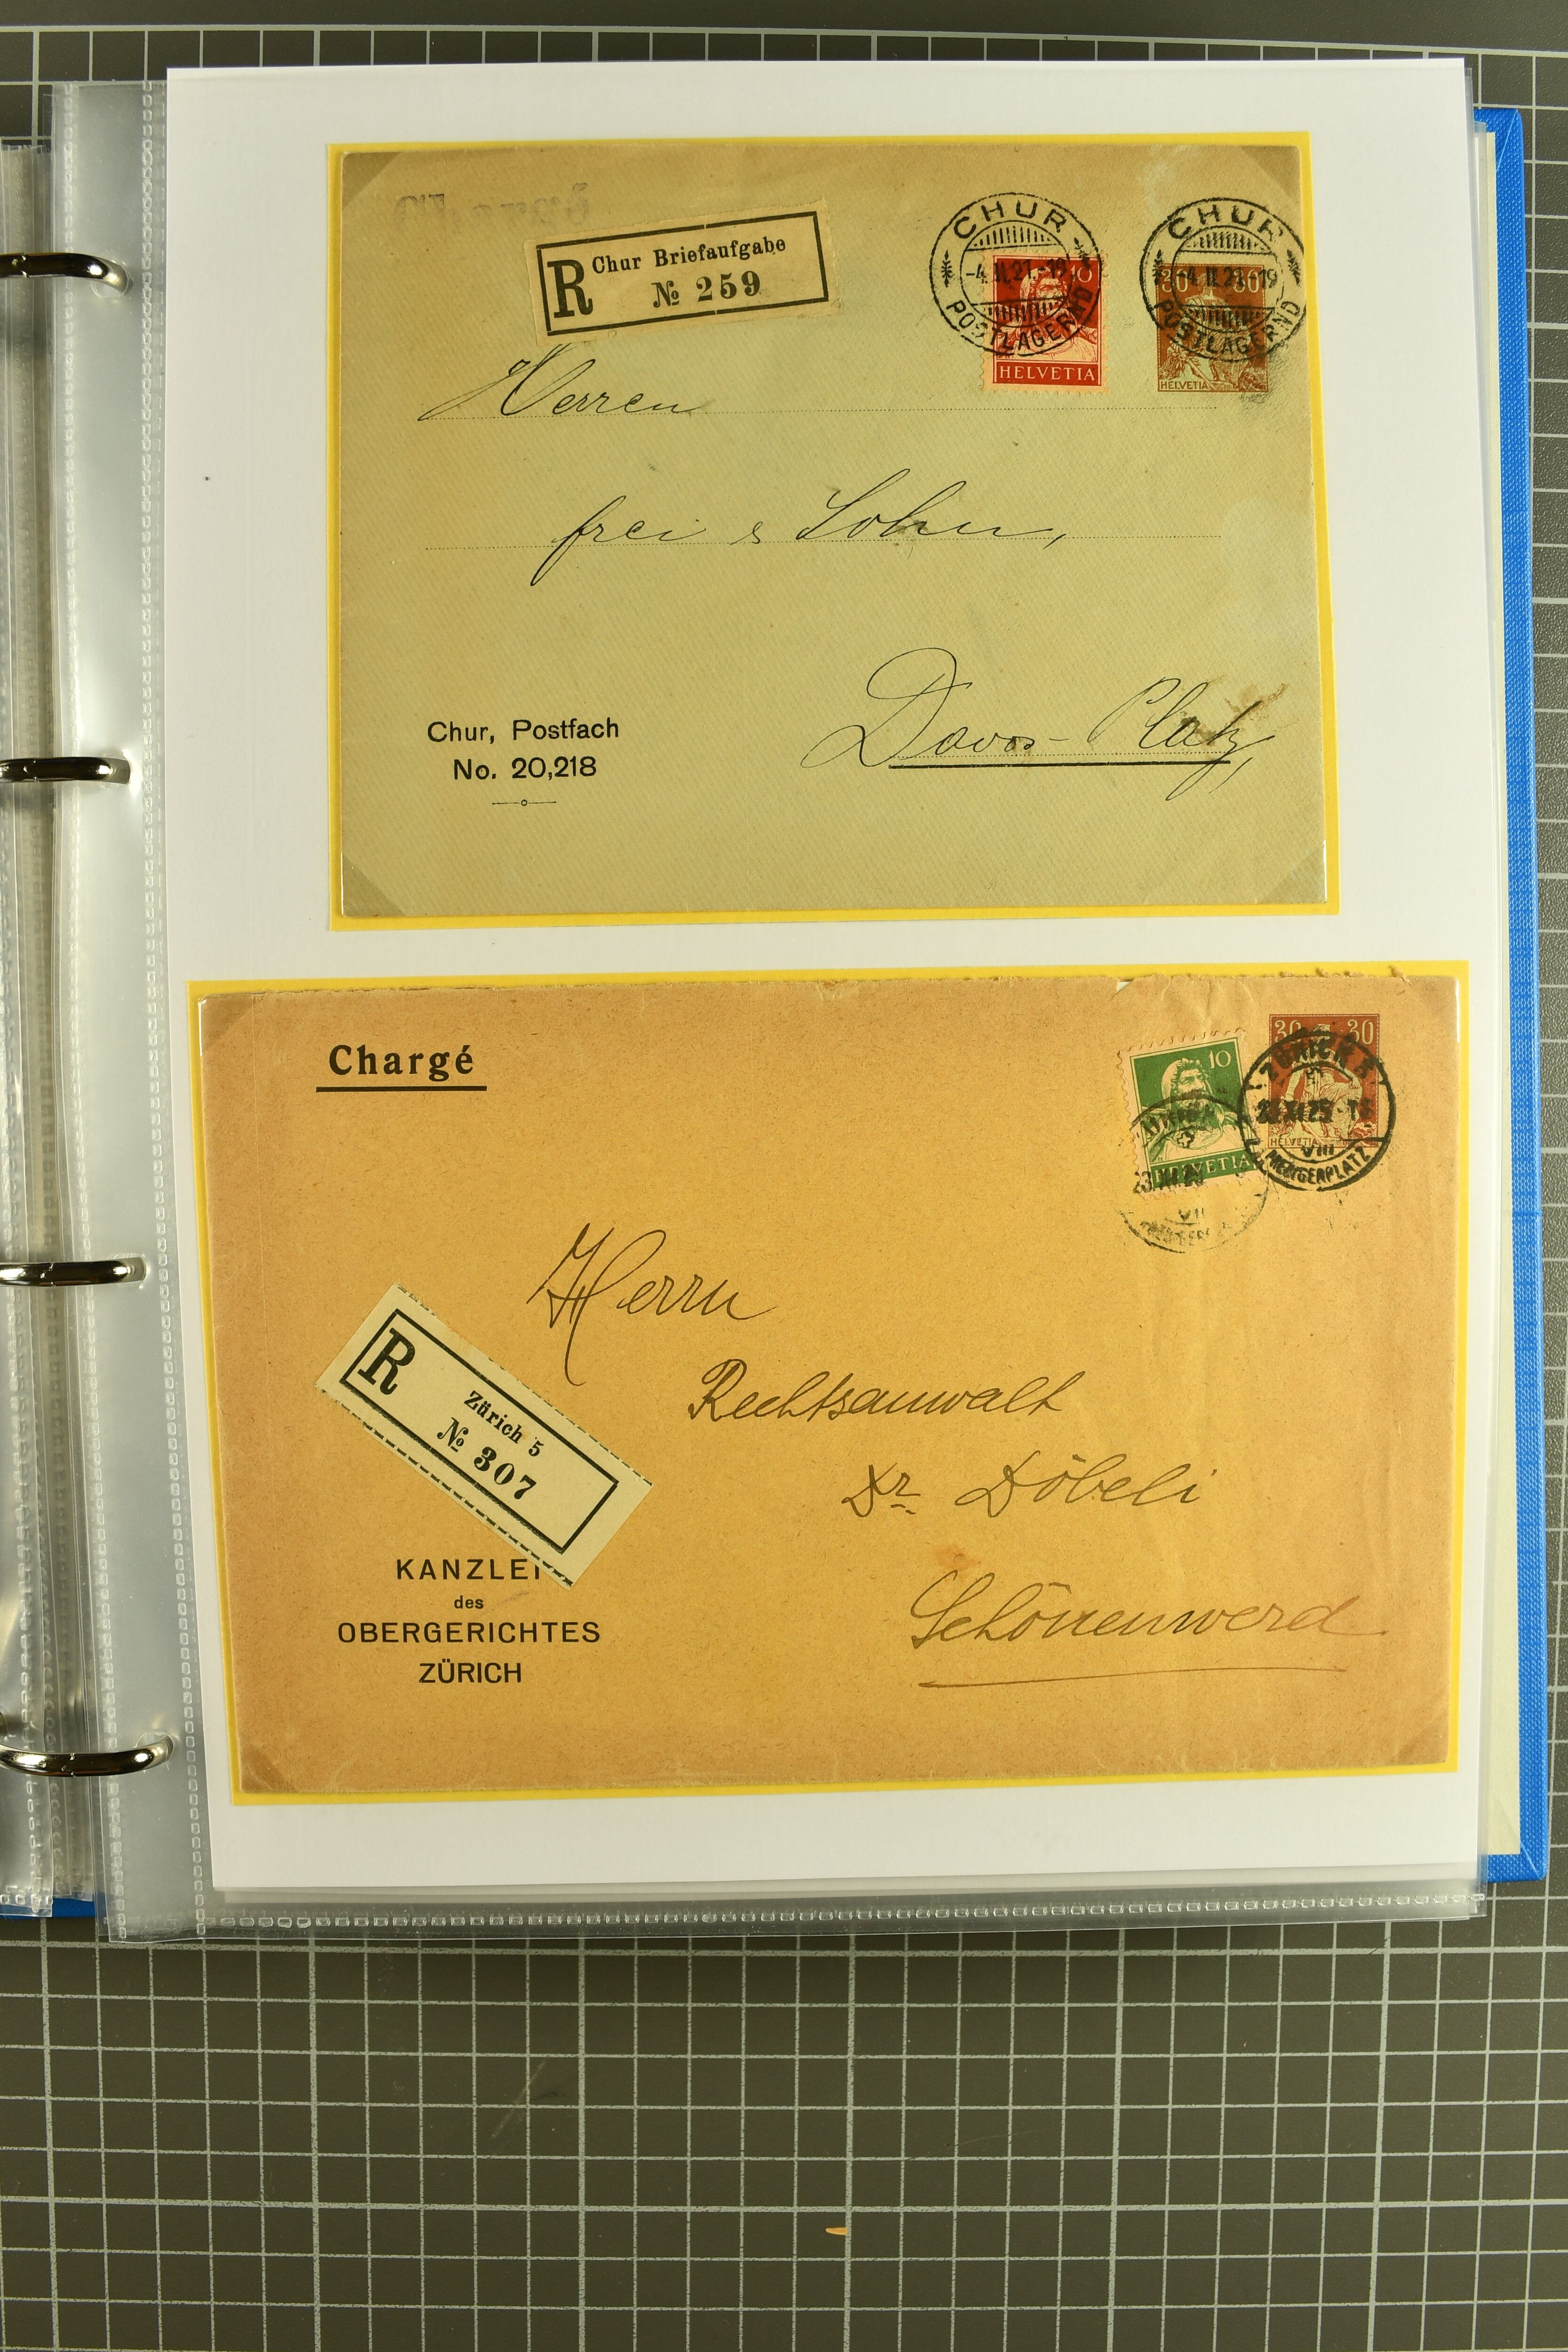 R Chur Briefaufgabe
№ 259
CHUR
-4.II.21.-19
POSTLAGERND
10
HELVETIA
CHUR
-4.II.21.-19
POSTLAGERND
30 30
HELVETIA
Herren
frei & Sohn,
Davos-Platz,
Chur, Postfach
No. 20,218
Chargé
10
HELVETIA
VII
30 30
HELVETIA
ZÜRICH
VIII
Herrn
Rechtsanwalt
Dr. Döbeli
Schönenwerd
R
Zürich 5
№ 307
KANZLEI
des
OBERGERICHTES
ZÜRICH